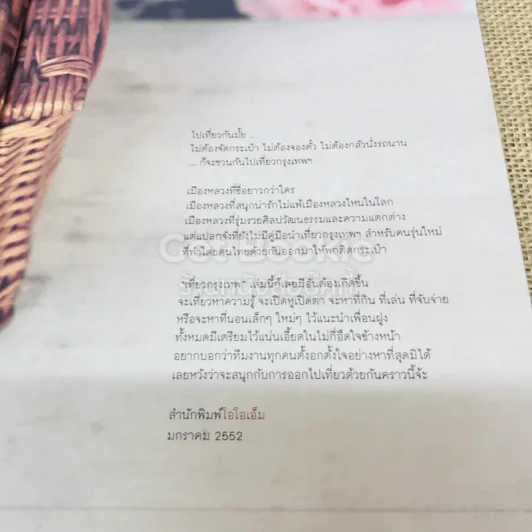 ไปเที่ยวกันมั้ย ..
ไม่ต้องจัดกระเป๋า ไม่ต้องจองตั๋ว ไม่ต้องกลัวนั่งรถนาน
... ก็จะชวนกันไปเที่ยวกรุงเทพฯ
เมืองหลวงที่ชื่อยาวกว่าใคร
เมืองหลวงที่สนุกน่ารักไม่แพ้เมืองหลวงไหนในโลก
เมืองหลวงที่รุ่มรวยศิลปวัฒนธรรมและความแตกต่าง
แต่แปลกจังที่ยังไม่มีคู่มือนำเที่ยวกรุงเทพฯ สำหรับคนรุ่นใหม่
ที่ทำโดยคนไทยด้วยกันออกมาให้พกติดกระเป๋า
"เที่ยวกรุงเทพ" เล่มนี้ก็เลยมีอันต้องเกิดขึ้น
จะเที่ยวหาความรู้ จะเปิดหูเปิดตา จะหาที่กิน ที่เล่น ที่จับจ่าย
หรือจะหาที่นอนเล็กๆ ใหม่ๆ ไว้แนะนำเพื่อนฝูง
ทั้งหมดมีเตรียมไว้แน่นเอี้ยดในไม่กี่อึดใจข้างหน้า
อยากบอกว่าทีมงานทุกคนตั้งอกตั้งใจอย่างหาที่สุดมิได้
เลยหวังว่าจะสนุกกับการออกไปเที่ยวด้วยกันคราวนี้จ้ะ
สำนักพิมพ์โอโอเอ็ม
มกราคม 2552